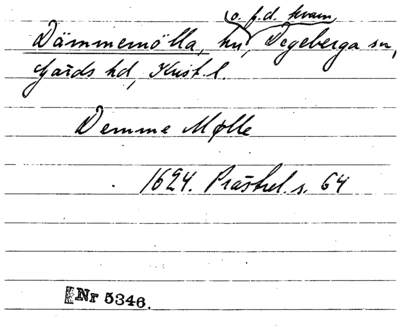 o. f.d. kvarn
Dämmemölla, hu, Degeberga sn,
Gärds hd, Krist. l.
Demme Mølle
1624. Prästrel. s. 64
Nr 5346.